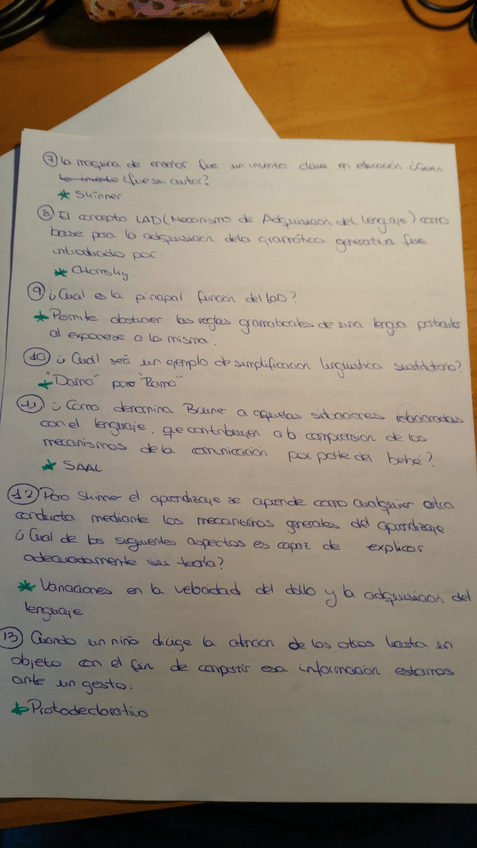 ⑦ La maquina de enseñar fue un invento clave en educación ¿Quien
to invento ¿fue su autor?
* Skinner
⑧ El concepto LAD (Mecanismo de Adquisicion del lenguaje) como
base para la adquisicion dela gramática generativa fue
introducido por:
* Chomsky.
⑨ ¿Cual es la pinapal funcion del LAD?
* Permite obtener las reglas gramaticales de una lengua
al exponerse a la misma.
⑩ ¿Cuál será un ejemplo de simplificacion linguistica sustitutoria?
* "Dama" para "Rama"
⑪ ¿Como denomina Bruner a aquellas situaciones relacionadas
con el lenguaje, que contribuyen a la comprension de los
mecanismos de la comunicación por parte del bebé?
* SAAL
⑫ Para Skinner el aprendizaje se aprende como cualquier otra
conducta mediante los mecanismos generales del aprendizaje.
¿Cual de los siguientes aspectos es capaz de explicar
adecuadamente su teoria?
* Variaciones en la velocidad del dllo y la adquisicion del
lenguaje
⑬ Cuando un niño dirige la atencion de los otros hasta un
objeto con el fin de compartir esa información estamos
ante un gesto:
* Protodeclarativo